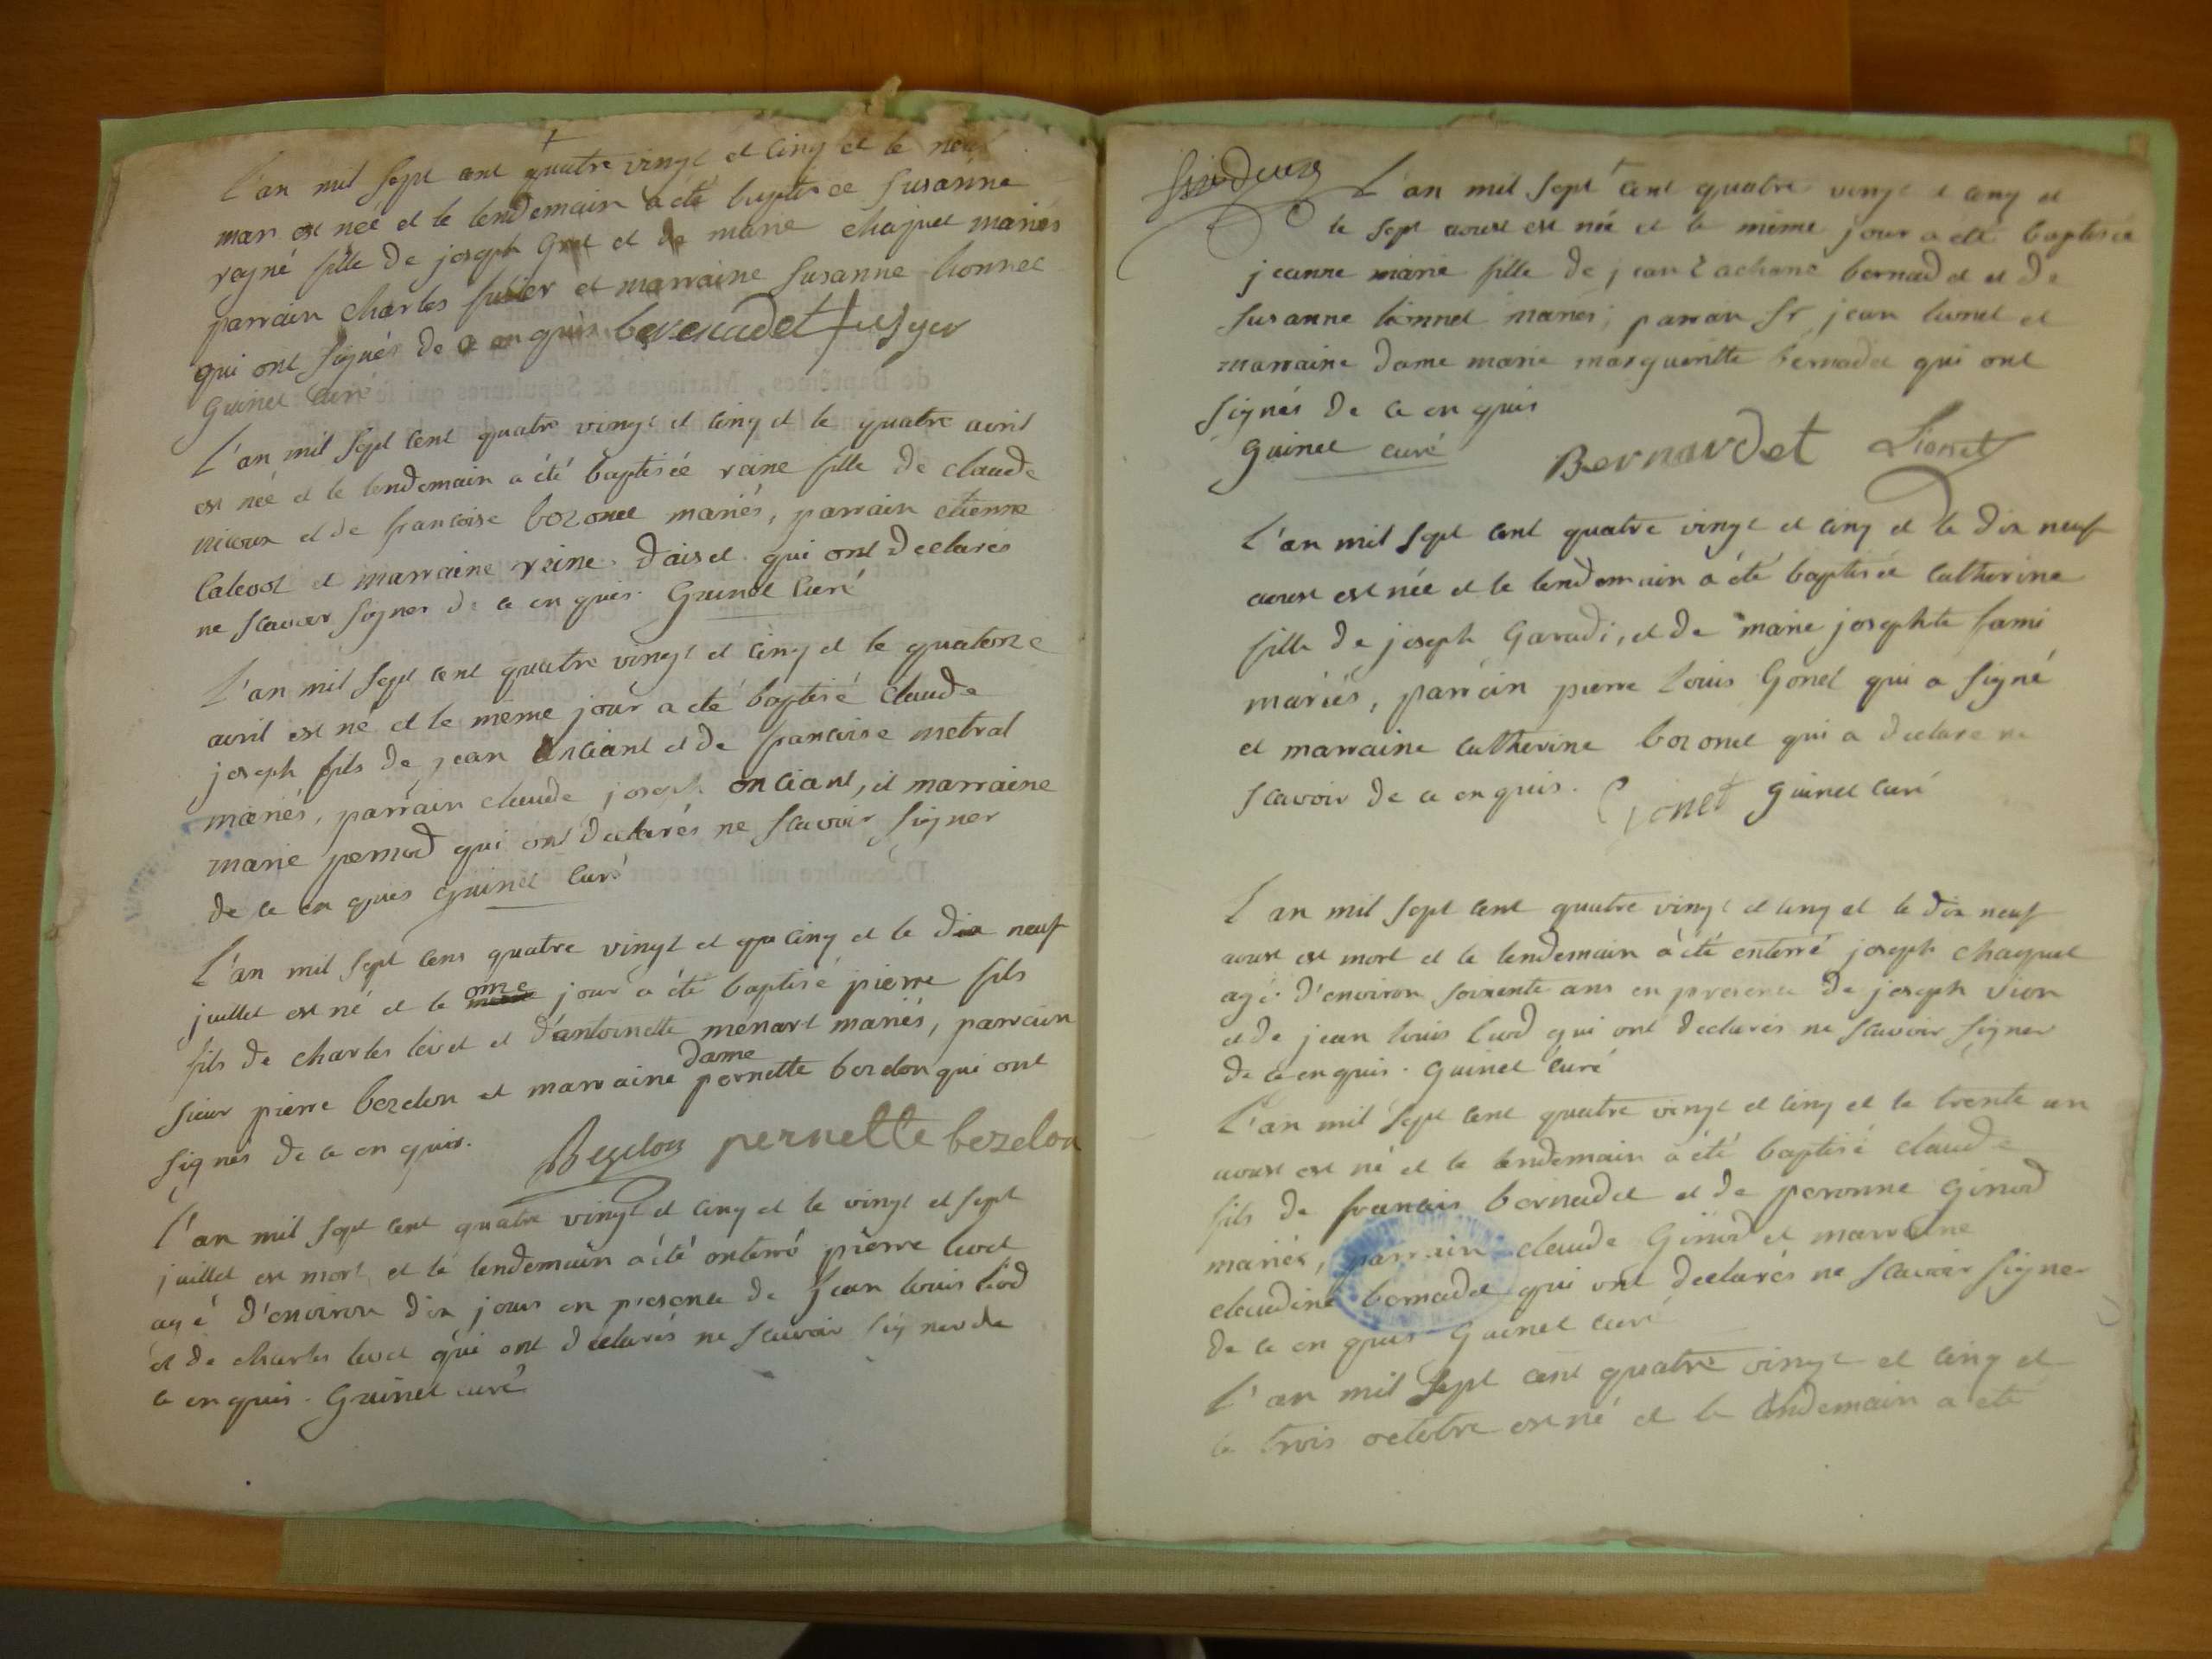 L'an mil sept cent quatre vingt et cinq et le neuf
mar est neé et le lendemain a eté baptisée susanne
reyné fille de joseph et de marie chapuet mariés
parrain charles et marraine susanne lionnet
qui ont signés de ce enquis
Guinet curé
L'an mil sept cent quatre vingt et cinq et le quatre avril
est neé et le lendemain a été baptisée reine fille de claude
nicoux et de francoise bozonet mariés, parrain etienne
et marraine reine daiset qui ont declarés
ne scavoir signer de ce enquis. Guinet Curé
L'an mil sept cent quatre vingt et cinq et le quatorze
avril est né et le même jour a eté baptisé claude
joseph fils de jean onciant et de francoise metral
mariés, parrain claude joseph onciant, et marraine
marie pernod qui ont declarés ne scavoir signer
de ce en quis guinet Curé
L'an mil sept cens quatre vingt et cinq et le dix neuf
juillet est né et le jour a été baptisé pierre fils
fils de charles livet et d'antoinette ménart mariés, parrain
sieur pierre bezelon et marraine dame pernette bezelon qui ont
signés de ce en quis. Bezelon pernette bezelon
L'an mil sept cent quatre vingt et cinq et le vingt et sept
juillet est mort et le lendemain a été enterré pierre livet
agé d'environ dix jours en presence de jean louis liod
et de charles livet qui ont declarés ne scavoir signer de
ce en quis. Guinet curé
L'an mil sept cent quatre vingt et cinq et
le sept aoust est née et le même jour a été baptisée
jeanne marie fille de jean zacharie bernadet et de
susanne lionnet mariés; parrain sr jean lionet et
marraine dame marie margueritte bernadet qui ont
signés de ce en quis
guinet curé Bernardet Lionet
L'an mil sept cent quatre vingt et cinq et le dix neuf
aoust est née et le lendemain a été baptisée catherine
fille de joseph Gavadi, et de marie josephte fami
mariés, parrain pierre louis Gonet qui a signé
et marraine catherine bozonet qui a declare ne
scavoir de ce enquis. Gonet guinet curé
L'an mil sept cent quatre vingt et cinq et le dix neuf
aoust est mort et le lendemain a été enterré joseph chapuet
agé d'environ soixente ans en presence de joseph vion
et de jean louis liod qui ont declarés ne scavoir signer
de ce enquis. Guinet curé
L'an mil sept cent quatre vingt et cinq et le trente un
aoust est né et le lendemain a été baptisé claude
fils de francais bernadet et de peronne Girod
mariés, parrain claude Girod et marraine
claudine bernadet qui ont declarés ne scavoir signer
de ce en quis Guinet curé
L'an mil sept cent quatre vingt et cinq et
le trois octobre est né et le lendemain a eté